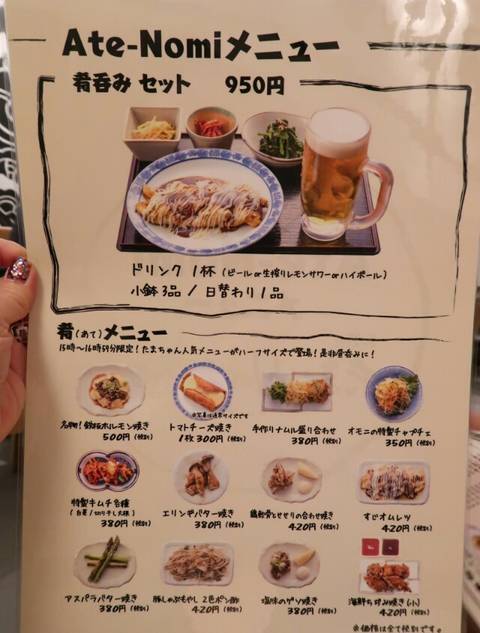 Ate-Nomiメニュー
肴呑み セット 950円
ドリンク 1杯 (ビール or 生搾りレモンサワー or ハイボール)
小鉢 3品 / 日替わり 1品
肴(あて)メニュー
15時~16時59分限定! たまちゃん人気メニューがハーフサイズで登場! 是非昼呑みに!
※写真は通常サイズです
名物! 鉄板ホルモン焼き
500円 (税別)
トマトチーズ焼き
1枚 300円 (税別)
手作りナムル盛り合わせ
380円 (税別)
オモニの特製チャプチェ
350円 (税別)
特製キムチ各種
(白菜/切り干し大根)
380円 (税別)
エリンギバター焼き
380円 (税別)
鶏軟骨とせせりの合わせ焼き
420円 (税別)
すじオムレツ
420円 (税別)
アスパラバター焼き
380円 (税別)
豚しゃぶもやし 2色ポン酢
420円 (税別)
塩味のゲソ焼き
380円 (税別)
海鮮ちヂみ焼き(小)
420円 (税別)
※価格は全て税別です。